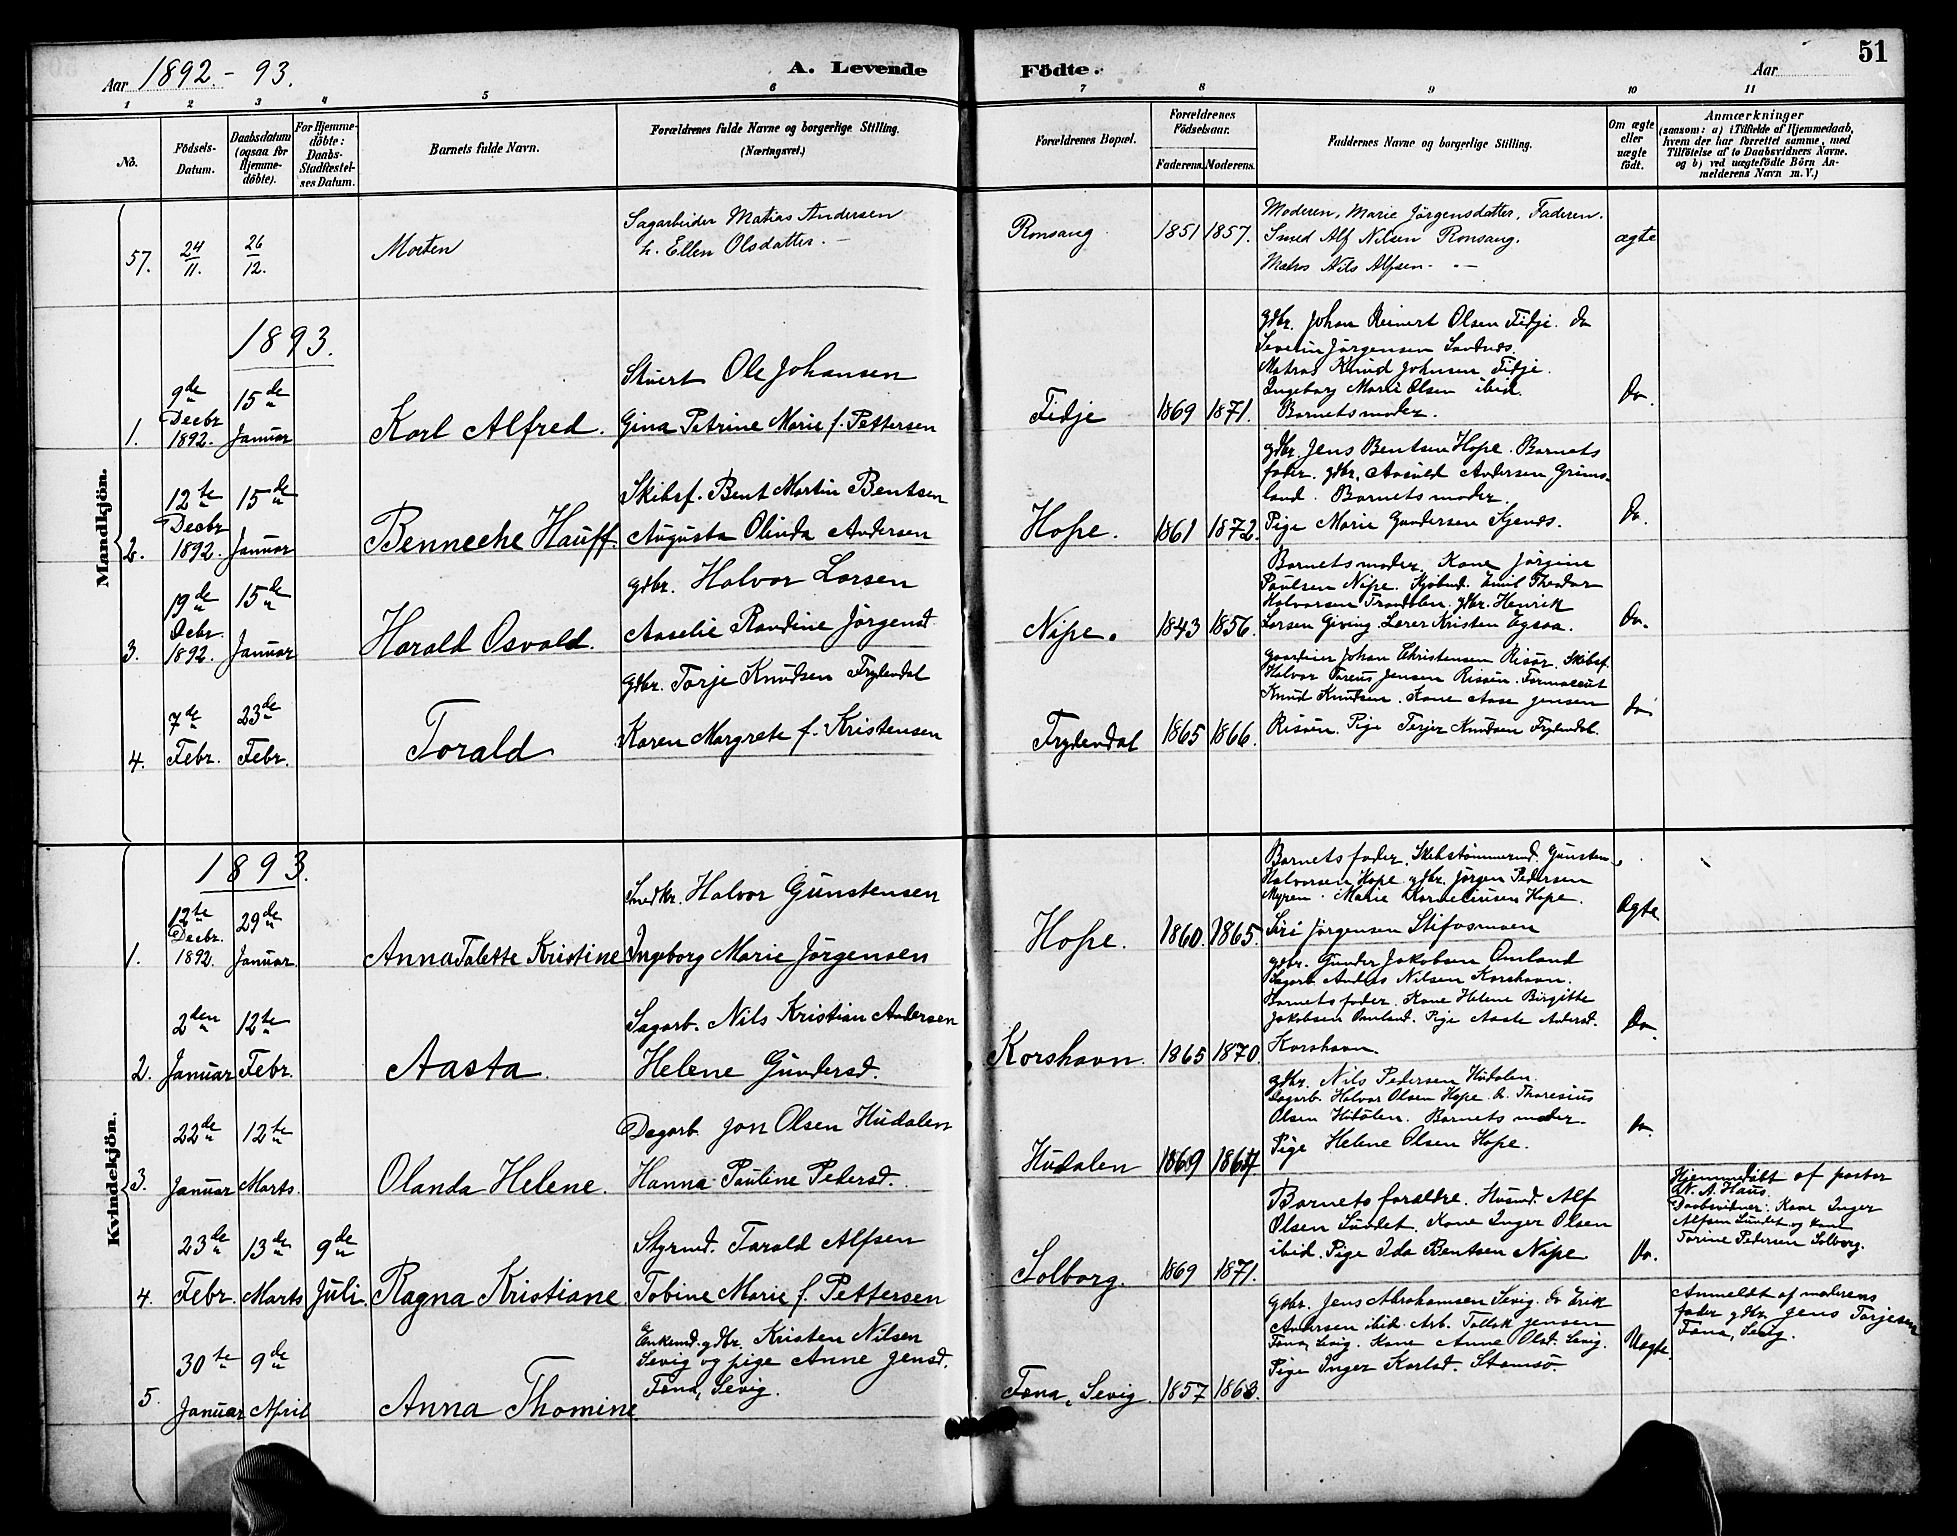 Aar 1892. - 93.
A. Levende
Födte.
Aar
51
1 2 3 4 5 6 7 8 9 10 11
No.
Födsels-Datum.
Daabsdatum (ogsaa for Hjemme-döbte).
For Hjemme-döbte: Daabs-Stadfæstel-ses Datum.
Barnets fulde Navn.
Forældrenes fulde Navne og borgerlige Stilling.
(Næringsvei.)
Forældrenes Bopæl.
Forældrenes Födselsaar.
Faderens. Moderens.
Faddernes Navne og borgerlige Stilling.
Om ægte eller uægte födt.
Anmærkninger
(saasom: a) i Tilfælde af Hjemmedaab,
hvem der har forrettet samme, med
Tilföielse af to Daabsvidners Navne.
og b) ved uægtefödte Börn An-
melderens Navn m. V.)
Mandkjön.
57.
24/11.
26/12.
Morten
Sagarbeider Matias Andersen
h. Ellen Olsdatter. —
Ronsaug
1851 1857.
Moderen, Marie Jörgensdatter, Faderen.
Smed Alf Nilsen Ronsaug.
Matros Nils Alfsen. -"-
ægte
1893.
1.
9de Decbr 1892.
15de Januar
Karl Alfred.
Stuert Ole Johansen
Gina Petrine Marie f. Pettersen
Fidje
1869 1871.
gdbr. Johan Reinert Olsen Fidje. do
Severin Jørgensen
Matros Knud Johnsen Fidje.
Ingeborg Marie Olsen ibid.
Barnets moder.
Do.
2.
12te Decbr 1892.
15de Januar
Benneche Hauff.
Skibsf. Bent Martin Bentsen
Augusta Olinda Andersen
Hope.
1861 1872.
gdbr. Jens Bentsen Hope. Barnets
fader. gdbr. Aasuld Andersen Grims-
land. Barnets moder.
Pige Marie Gundersen
Do.
3.
19de Debr. 1892.
15de Januar
Harald Osvald.
gdbr. Halvor Larsen
Aaselie Randine Jörgensd.
Nipe.
1843 1856.
Barnets moder. Kone Jørgine
Paulsen Nipe. Kjøbmd. Emil Theodor
Halvorsen Trondalen. gdbr. Henrik
Larsen Giving. Lærer Kristen Egsaa.
Do.
4.
7de Febr.
23de Febr.
Torald
gdbr. Torje Knudsen Frydendal
Karen Margrete f. Kristensen
Frydendal
1865 1866.
Gaardeier Johan Christensen Risør. Skibsf.
Halvor Jensen Risøen. Farmaceut
Knud Knudsen. Kone Aase Jensen
Risøen. Pige Terjer Knudsen Frydendal.
do
Kvindekjön.
1893.
1.
12te Decbr. 1892.
29de Januar.
Anna Talette Kristine
Smedkr. Halvor Gunstensen
Ingeborg Marie Jørgensen
Hope.
1860. 1865.
Barnets fader. Skibstømmermd. Gunsten
Halvorsen Hope. gdbr. Jørgen Pedersen
Myren. Marie Korneliusen Hope.
Siri Jørgensen Stifosmoen
Ægte.
2.
2den Januar
12te Febr.
Aasta
Sagarb. Nils Kristian Andersen
Helene Gundersd.
Korshavn.
1865 1870.
gdbr. Gunder Jakobsen Omland
Sagarb. Anders Nilsen Korshavn.
Barnets fader. Kone Helene Birgitte
Jakobsen Omland. Pige Aaste Andersd.
Korshavn.
Do.
3.
22de Januar
12te Marts.
Olanda Helene.
Dagarb. Jon Olsen Hudalen
Hanna Pauline Pedersd.
Hudalen
1869 1867
gdbr. Nils Pedersen Hudalen.
Dagarb. Halvor Olsen Hope. do. Thoresius
Olsen Hudalen. Barnets moder.
Pige Helene Olsen Hope.
Do.
4.
23de Febr.
13de Marts
9de Juli.
Ragna Kristiane
Styrmd. Tarald Alfsen
Tobine Marie f. Pettersen
Solborg.
1869 1871.
Barnets forældre. Husmd. Alf
Olsen Sundet. Kone Inger Olsen
ibid. Pige Ida Bentsen Nipe
Do.
Hjemmedøbt af pastor
N. A. Haus.
Daabsvidner: Kone Inger
Alfsen Sundet og kone
Torine Pedersen Solborg.
5.
30te Januar
9de April
Anna Thomine
Enkemd. gdbr. Kristen Nilsen
Sevig og pige Anne Jensd.
Fona, Sevig.
Fona, Sevig
1857 1863.
gdbr. Jens Abrahamsen Sevig. do Erik
Andersen ibid. Arb. Tallak Jensen
Fona, Sevig. Kone Anne Olsd. Sevig.
Pige Inger Karlsd. Stamsø
Uægte.
Anmeldt af moderens
fader gdbr. Jens Torjesen
Fona, Sevig.